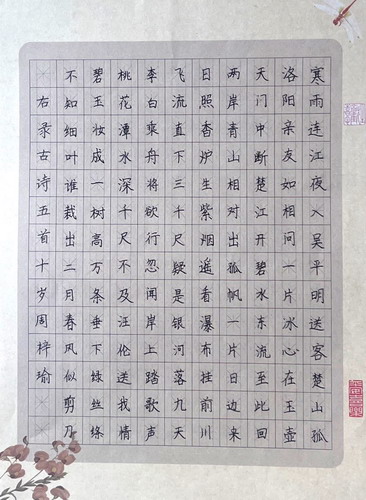 寒雨连江夜入吴平明送客楚山孤
洛阳亲友如相问一片冰心在玉壶
天门中断楚江开碧水东流至此回
两岸青山相对出孤帆一片日边来
日照香炉生紫烟遥看瀑布挂前川
飞流直下三千尺疑是银河落九天
李白乘舟将欲行忽闻岸上踏歌声
桃花潭水深千尺不及汪伦送我情
碧玉妆成一树高万条垂下绿丝绦
不知细叶谁裁出二月春风似剪刀
右录古诗五首十岁周梓瑜